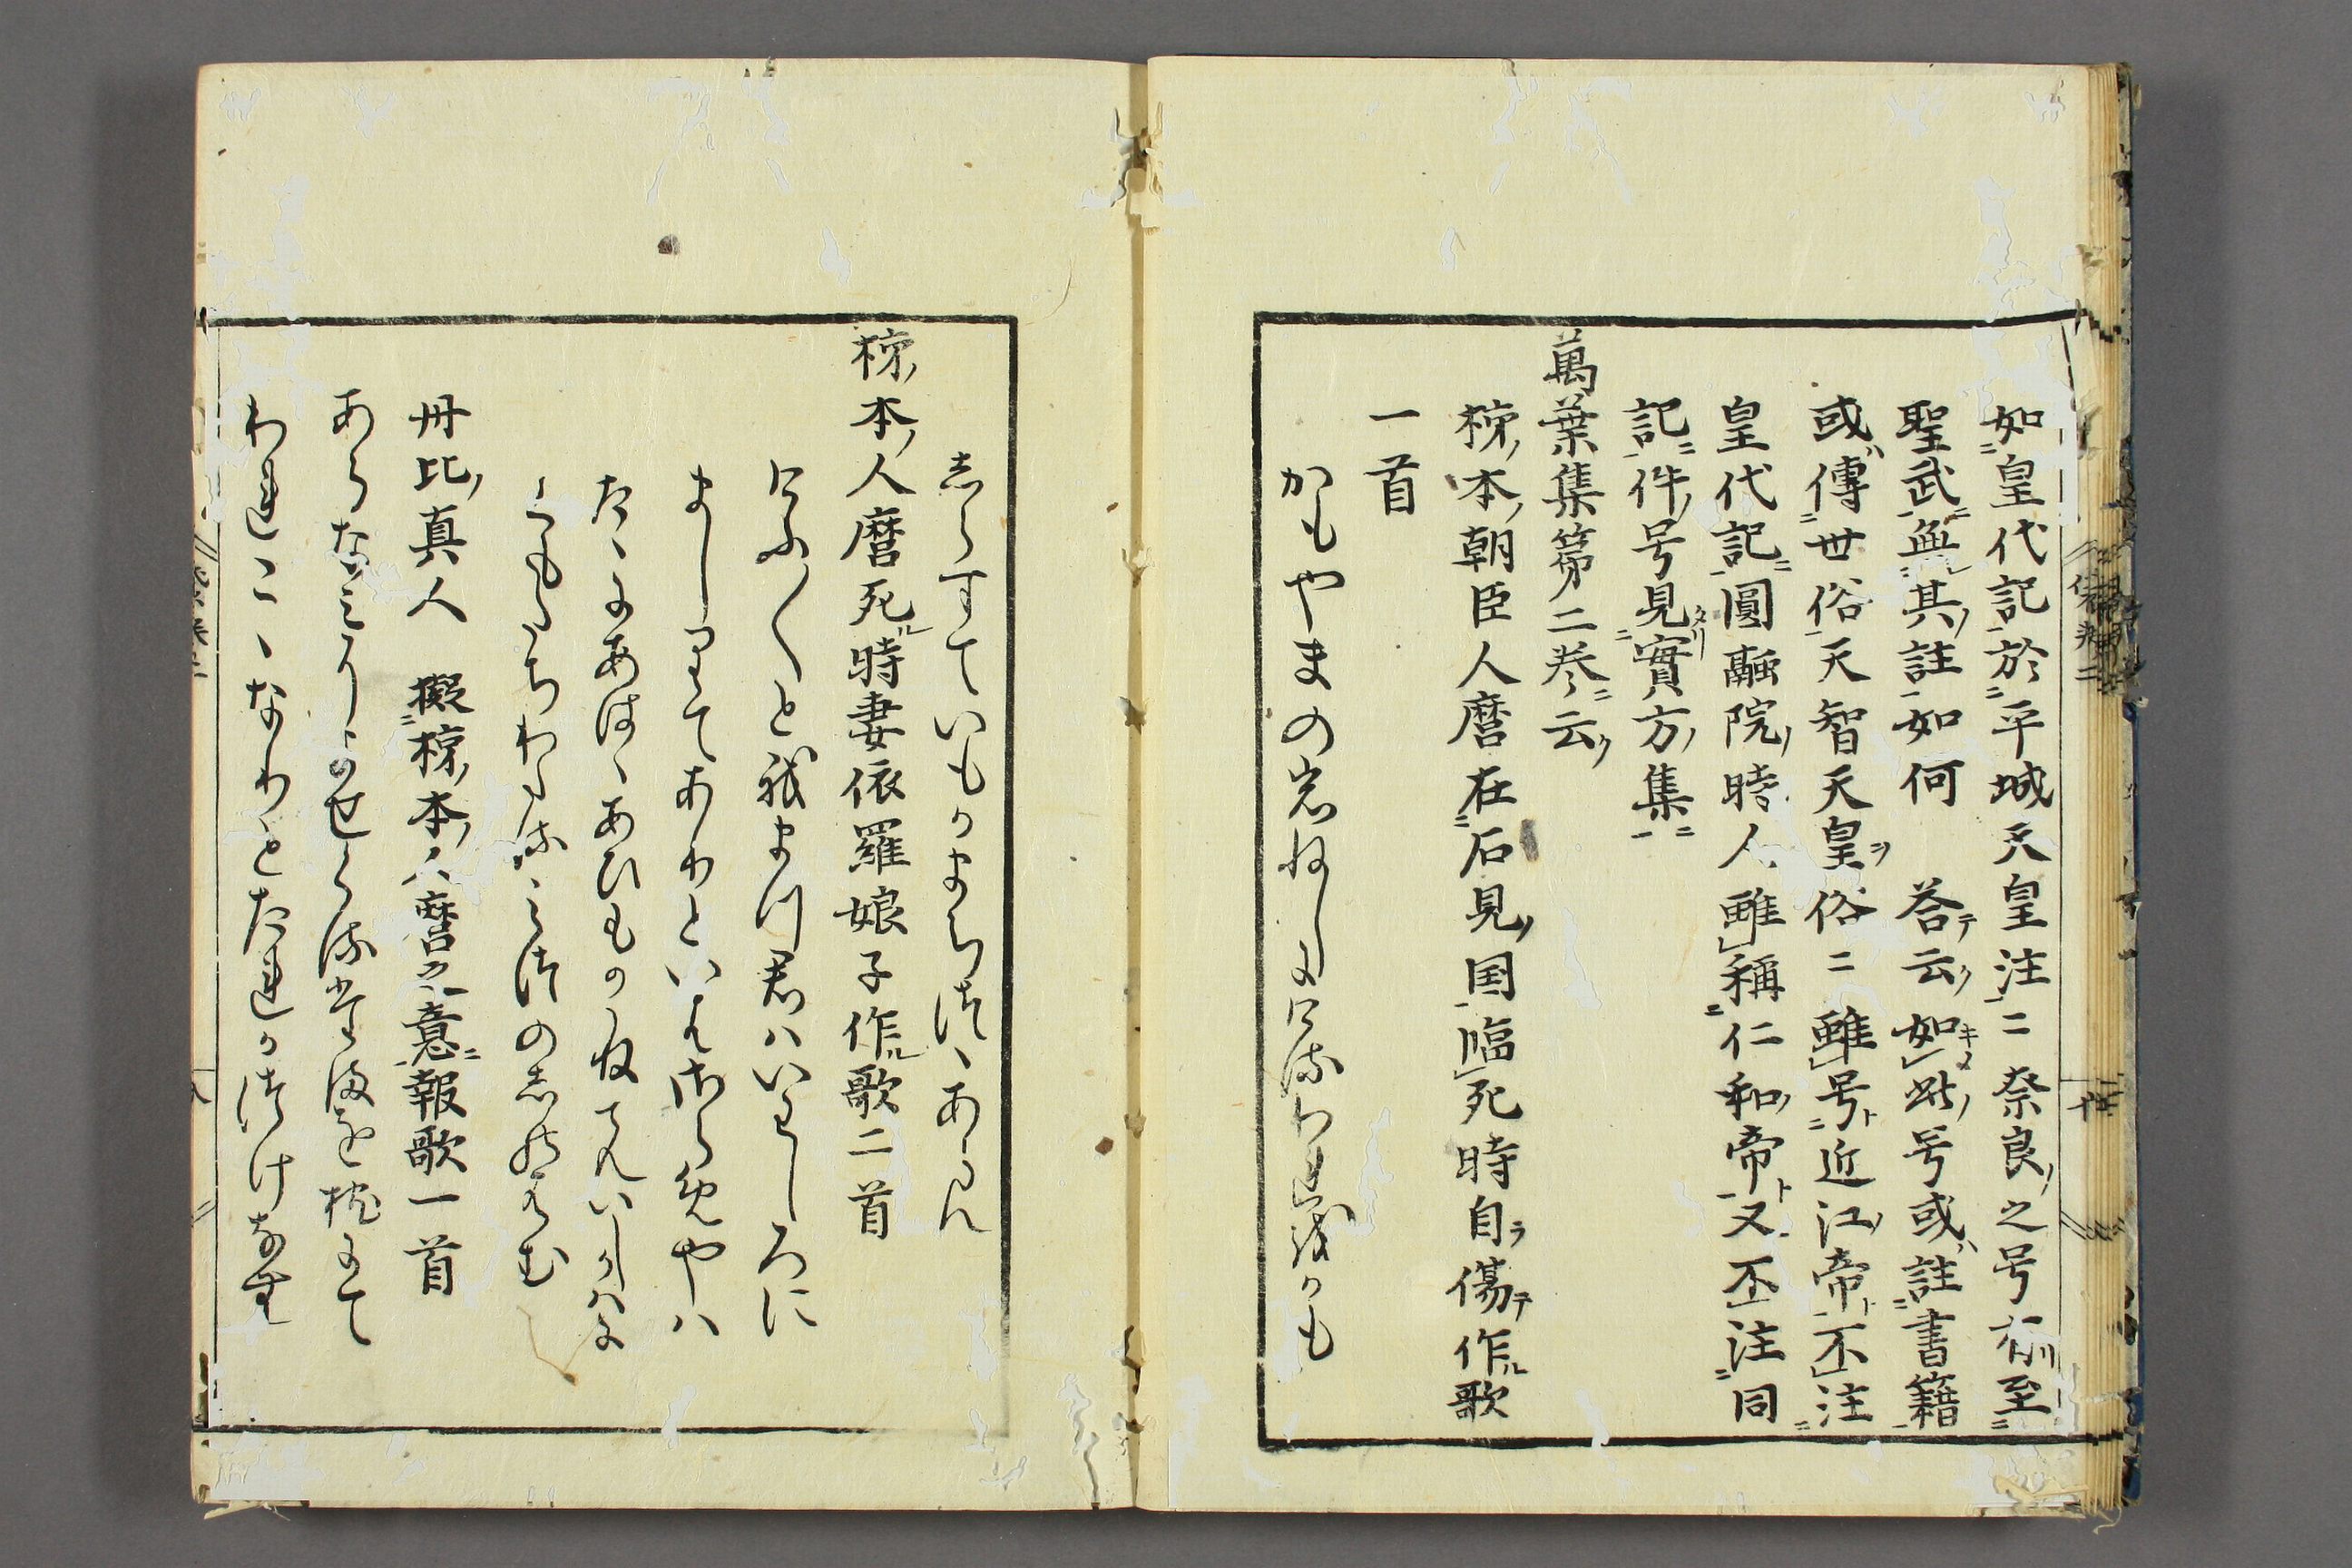 如皇代記於平城天皇注ニ奈良之号有至
聖武無其註如何 答云如此号或註書籍
或傳世俗天智天皇俗ニ雖号近江帝不注
皇代記圓融院時人雖稱仁和帝又不注同
記件号見實方集
萬葉集第二巻云
柿本朝臣人麿在石見国臨死時自傷作歌
一首
かもやまの岩ねしまける我をかも
しらすていもかまちつゝあらん
柿本人麿死時妻依羅娘子作歌二首
けふ〱と我まつ君はいしみつに
ましりてありといはすやは
たゝにあはゝあひもかねてんいしかはに
くもたちわたれみつゝしのはむ
丹比真人 擬柿本人麿之意報歌一首
あらなみによせくる玉を枕にて
われこゝなりとたれかつけなむ